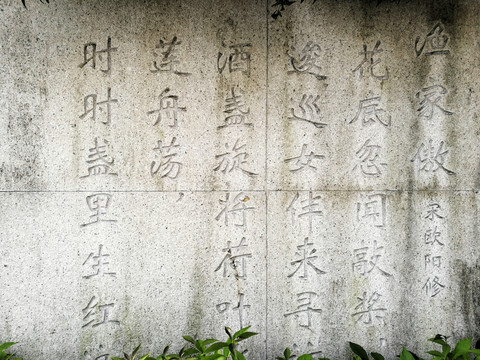 渔家傲 宋 欧阳修
花底忽闻敲桨,
逡巡女伴来寻
酒盏旋将荷叶
莲舟荡,
时时盏里生红